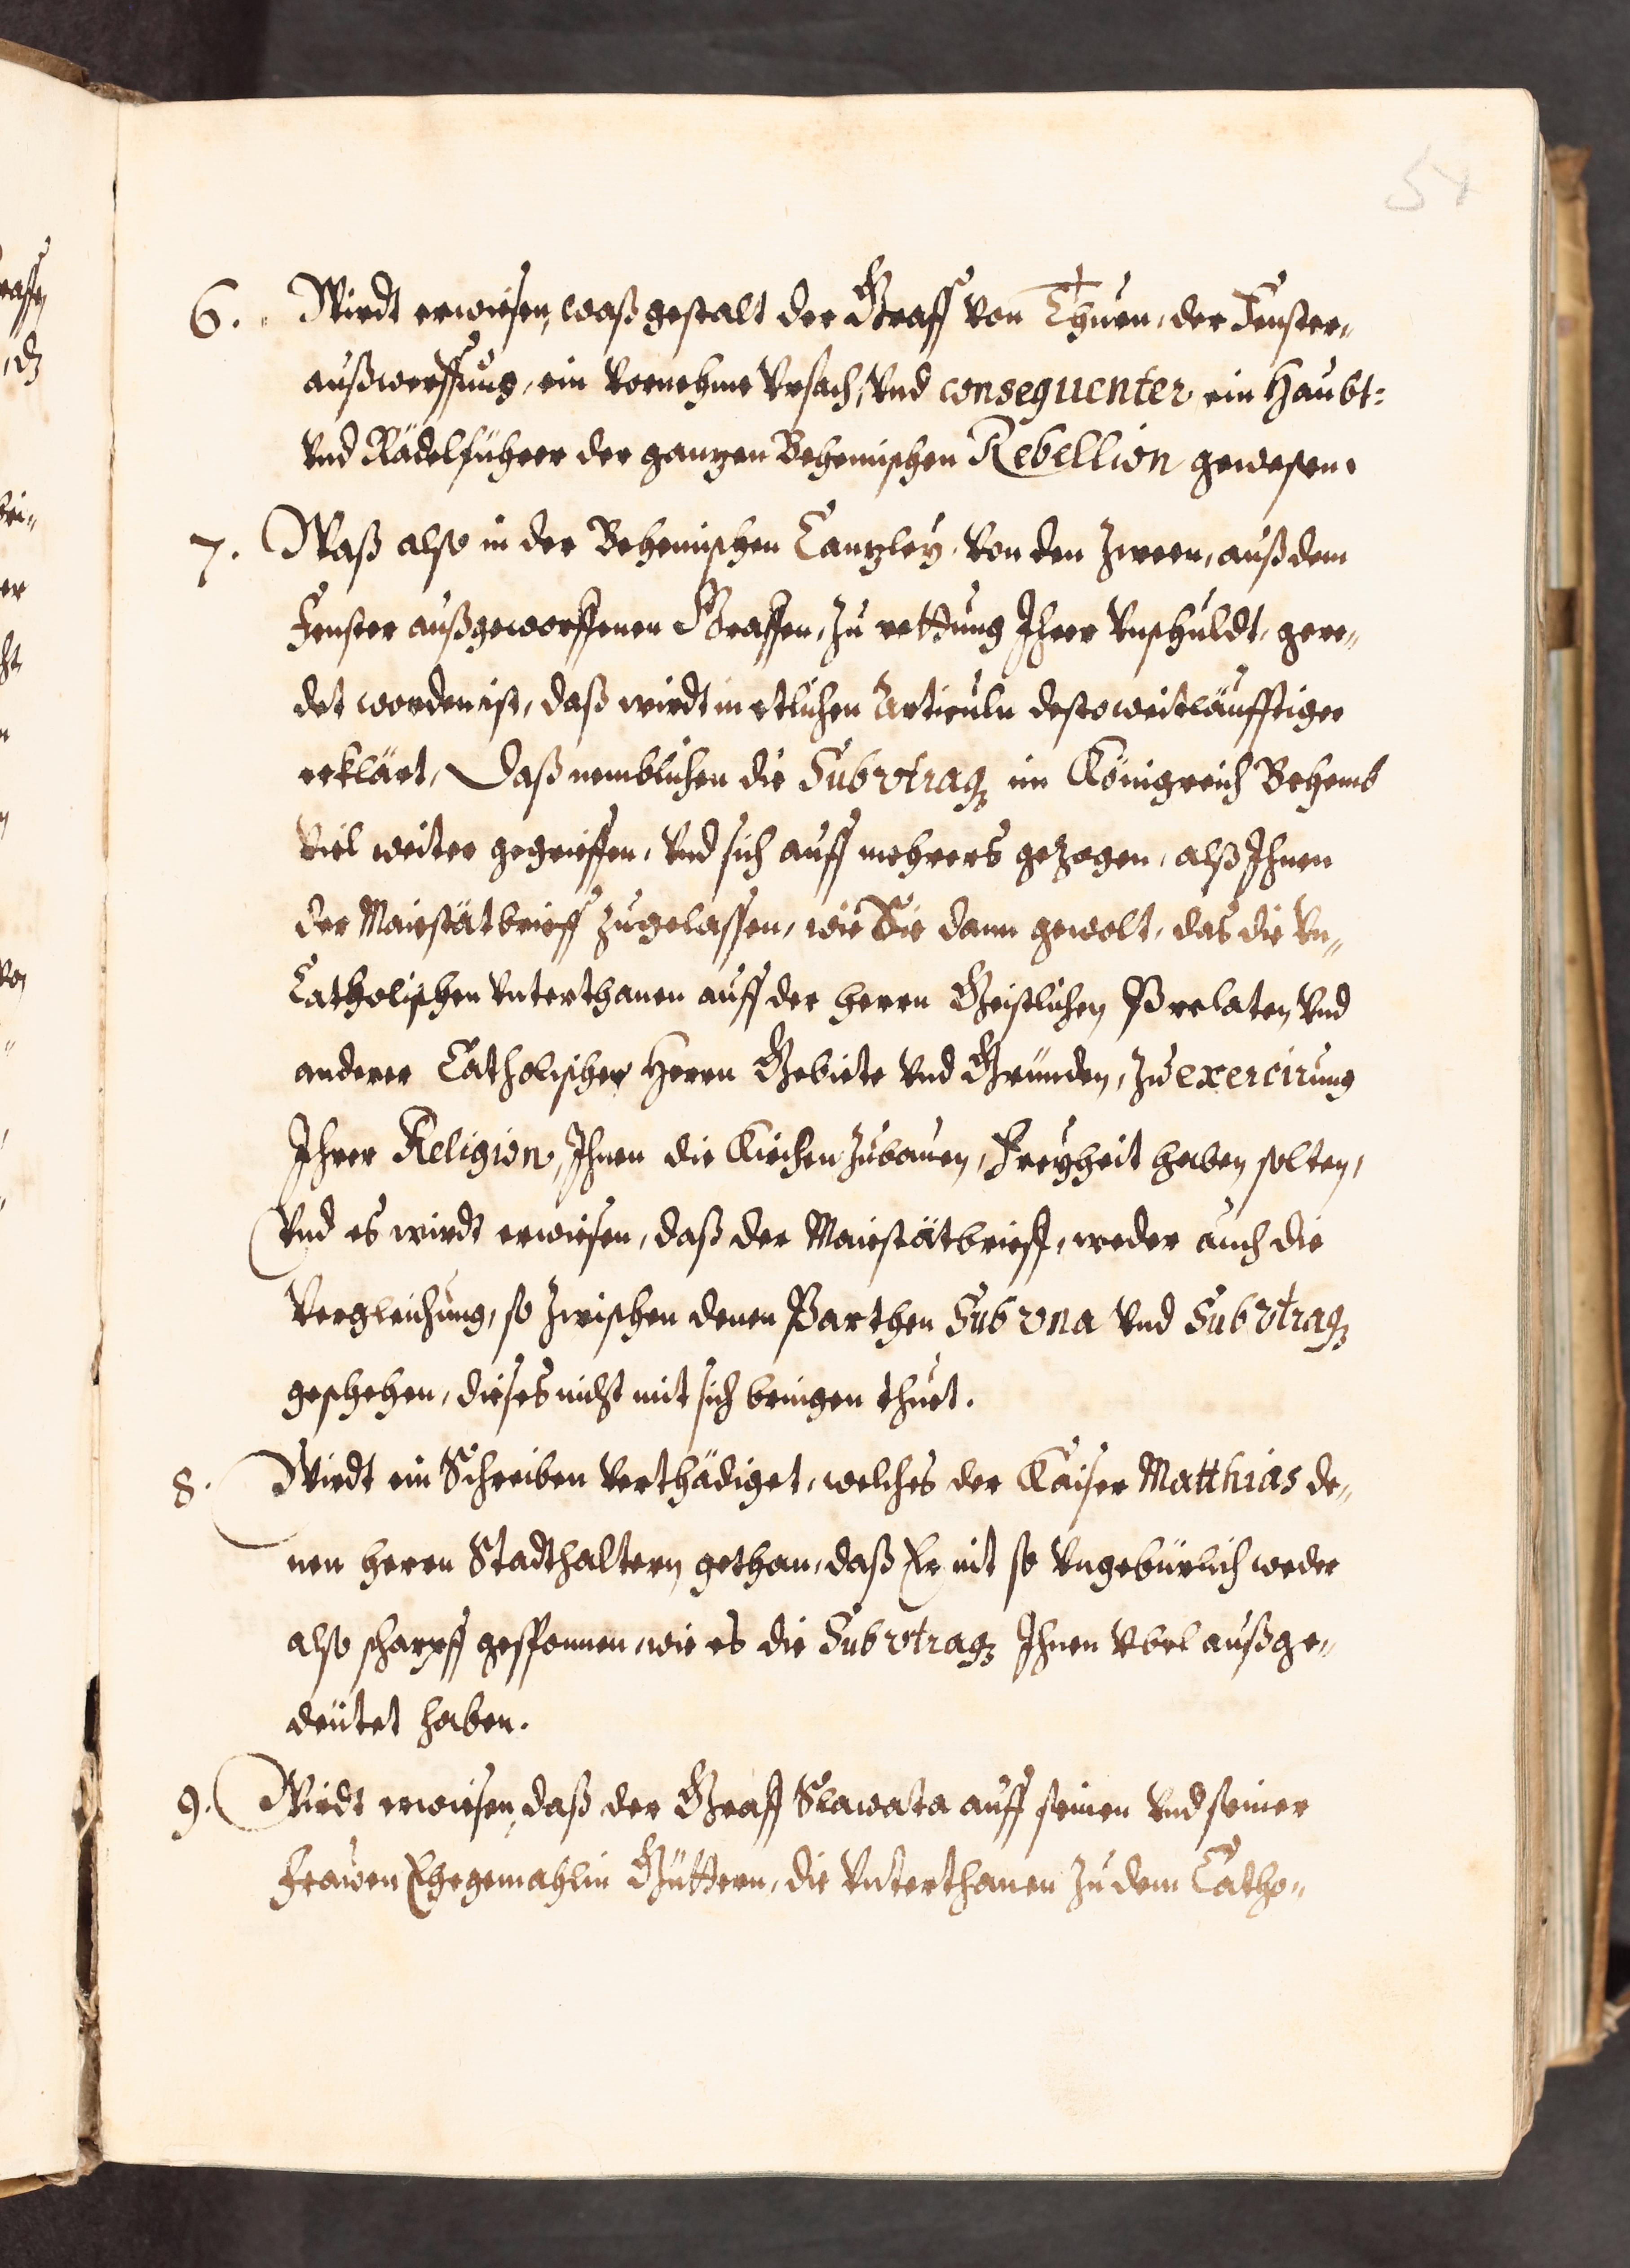 54
6. Wirdt erwiesen, waß gestalt der Graff von Thurn, der Fenster„
außwerffung, ein vornehme Vrsach, vnd consequenter ein Haubt=
vnd Rädelführer der gantzen Behemischen Rebellion gewesen.
7. Waß also in der Behemischen Cantzley, von den Zween, auß dem
Fenster außgeworffenen Graffen, zu rettung Ihrer Vnschuldt, gere„
det worden ist, daß wirdt in etlichen Articuln desto weitläufftiger
erklärt, Daß nemblichen die Sub vtraqȝ im Königreich Behemb
viel weiter gegrieffen, vnd sich auff mehrers gezogen, alß Ihnen
der Maiestätbrieff zugelassen, wie Sie dann gewolt, das die Vn„
Catholischen Vnterthanen auff der herrn Geistlichen Prelaten vnd
anderer Catholischer Herrn Gebiete vnd Gründen, zu exercirung
Ihrer Religion, Ihnen die Kirchen zubauen, Freyheit haben solten,
Vnd es wirdt erwiesen, daß der Maiestätbrieff, weder auch die
Vergleichung, so zwischen denen Parthen Sub vna vnd Sub vtraqȝ
geschehen, dieses nicht mit sich bringen thuet.
8. Wirdt ein Schreiben verthädiget, welches der Kaiser Matthias de„
nen herrn Stadthaltern gethan, daß Er nit so vngebürlich weder
also scharpff gesponnen, wie es die Sub vtraqȝ Ihnen vbel außge„
deütet haben.
9. Wirdt erwiesen, daß der Graff Slawata auff seinen vnd seiner
Frawen Ehegemahlin Güttern, die Vnterthanen zu dem Catho„